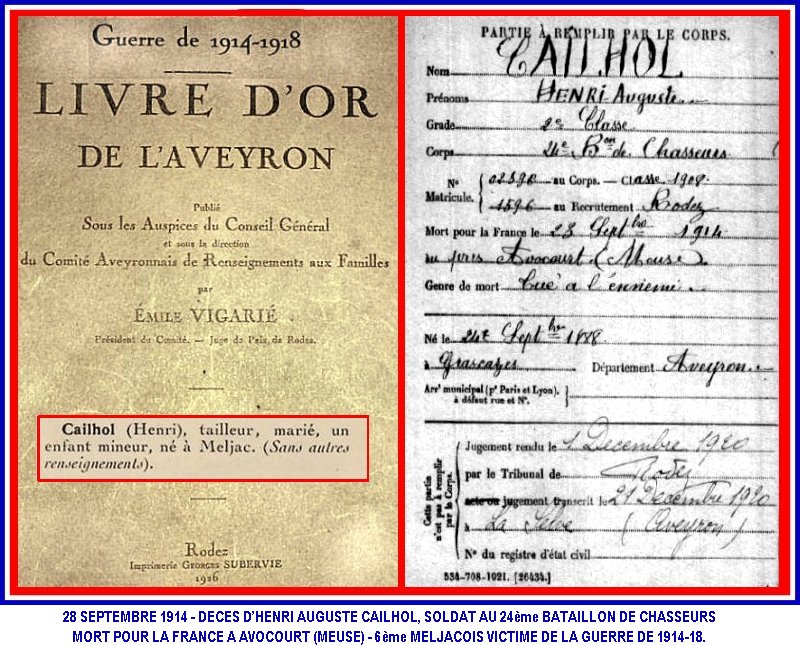 Guerre de 1914-1918
LIVRE D'OR
DE L'AVEYRON
Publié
Sous les Auspices du Conseil Général
et sous la direction
du Comité Aveyronnais de Renseignements aux Familles
par
ÉMILE VIGARIÉ
Président du Comité. — Juge de Paix de Rodez.
Cailhol (Henri), tailleur, marié, un
enfant mineur, né à Meljac. (Sans autres
renseignements).
Rodez
Imprimerie GEORGES SUBERVIE
1926
PARTIE À REMPLIR PAR LE CORPS.
Nom CAILHOL
Prénoms HENRI Auguste
Grade 2e Classe
Corps 24e Bon de Chasseurs
N° 02390 au Corps. — Classe 1908
Matricule. 1596 au Recrutement Rodez
Mort pour la France le 28 Septbre 1914
près Avocourt (Meuse)
Genre de mort Tué a l'ennemi
Né le 24 Septbre 1888
à Département Aveyron
Arrt municipal (pr Paris et Lyon),
à défaut rue et N°.
Cette partie
n'est pas à remplir
par le Corps.
Jugement rendu le 1 Decembre 1920
par le Tribunal de Rodez
acte ou jugement transcrit le 21 Décembre 1920
à La Selve (Aveyron)
N° du registre d'état civil
534-708-1921. [26434.]
28 SEPTEMBRE 1914 - DECES D'HENRI AUGUSTE CAILHOL, SOLDAT AU 24ème BATAILLON DE CHASSEURS
MORT POUR LA FRANCE A AVOCOURT (MEUSE) - 6ème MELJACOIS VICTIME DE LA GUERRE DE 1914-18.